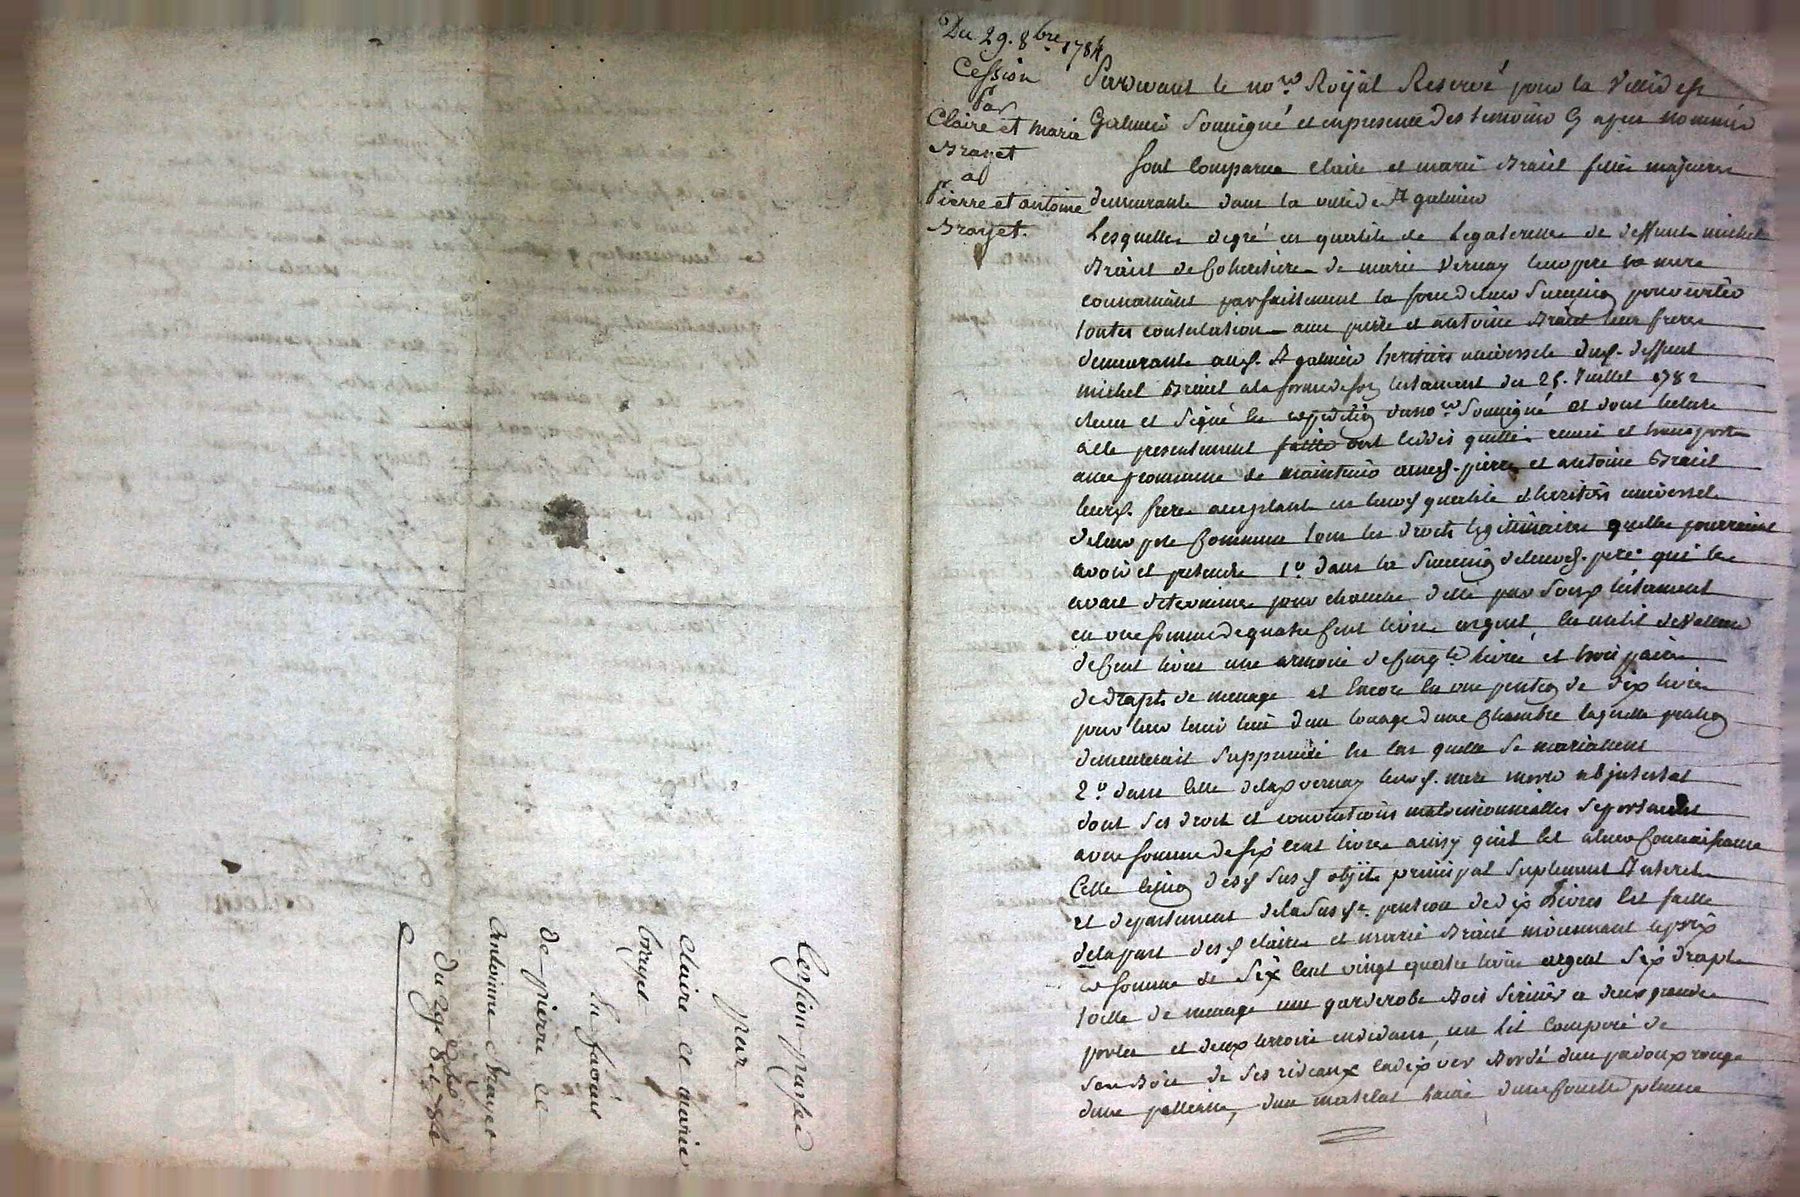 Du 29. 8bre 1784
Cession
Par
Claire et marie
Brayet
a
Pierre et antoine
Brayet.
Pardevant le nore Royal Reservé pour la ville de St
Galmier Soussigné et en presence des temoins cy apres nommés
Sont Comparue Claire et marie Braiet filles majeures
demeurante dans la ville de St galmier
Lesquelles de gré en qualité de Legaterelles de deffunt michel
Braiet de Coheritieres de marie Vernay leurs pere et mere
connaissant parfaittement la force de leurs Succession pour eviter
toutes contestation avec pierre et antoine Braiet leur freres
demeurants aud. St galmier heritiers universels dud. deffunt
michel Braiet a la forme de son testament du 25. Juillet 1782
receu et Signé en expedition du nore Soussigné et dont lecture
a été presentement faitte ont ceddés quittés remis et transporté
avec promesse de maintenir auxd. pierre et antoine Braiet
leursd. freres acceptants en leursd. qualité d'heritiers universels
de leur pere Commun tous les droits legitimaires quelles pourraient
avoir et pretendre 1o. dans la Succession de leursd. pere qui les
avait determinés pour chacune d'elle par Sond. testament
en une somme de quatre Cent livres argent, en un lit de valeur
de Cent livres une armoire de Cinqte livres et trois paires
de draps de menage et encore en une pention de dix livres
pour leur tenir lieu d'un louage d'une Chambre laquelle pention
demeurerait Supprimée en cas quelle Se mariassent
2o. dans Celle de lad. vernay leursd. mere morte abjntestat
dont Ses droit et conventions matrimonialles Se portaient
a une Somme de Six Cent livres ainsy quil est a leur Connaissance
Cette Cession desd. Susd. objets principal Suplement Interets
et departement de la Susde. pention de dix Livres est faitte
de la part desd. claire et marie Braiet moiennant le prix
et Somme de Six Cent vingt quatre livres argent Six draps
toille de menage une garderobe Bois Serisier a deux grandes
portes et deux tirroirs en dedans, un lit Composé de
Son Bois de Ses rideaux cadix ver Bordé d'un padoux rouge
d'une paillasse, d'un matelas laine d'une Couette plume
Cession passée
par
claire et marie
brayet
En faveur
de pierre et
Antoinne Brayet
Du 29e 8bre 1784